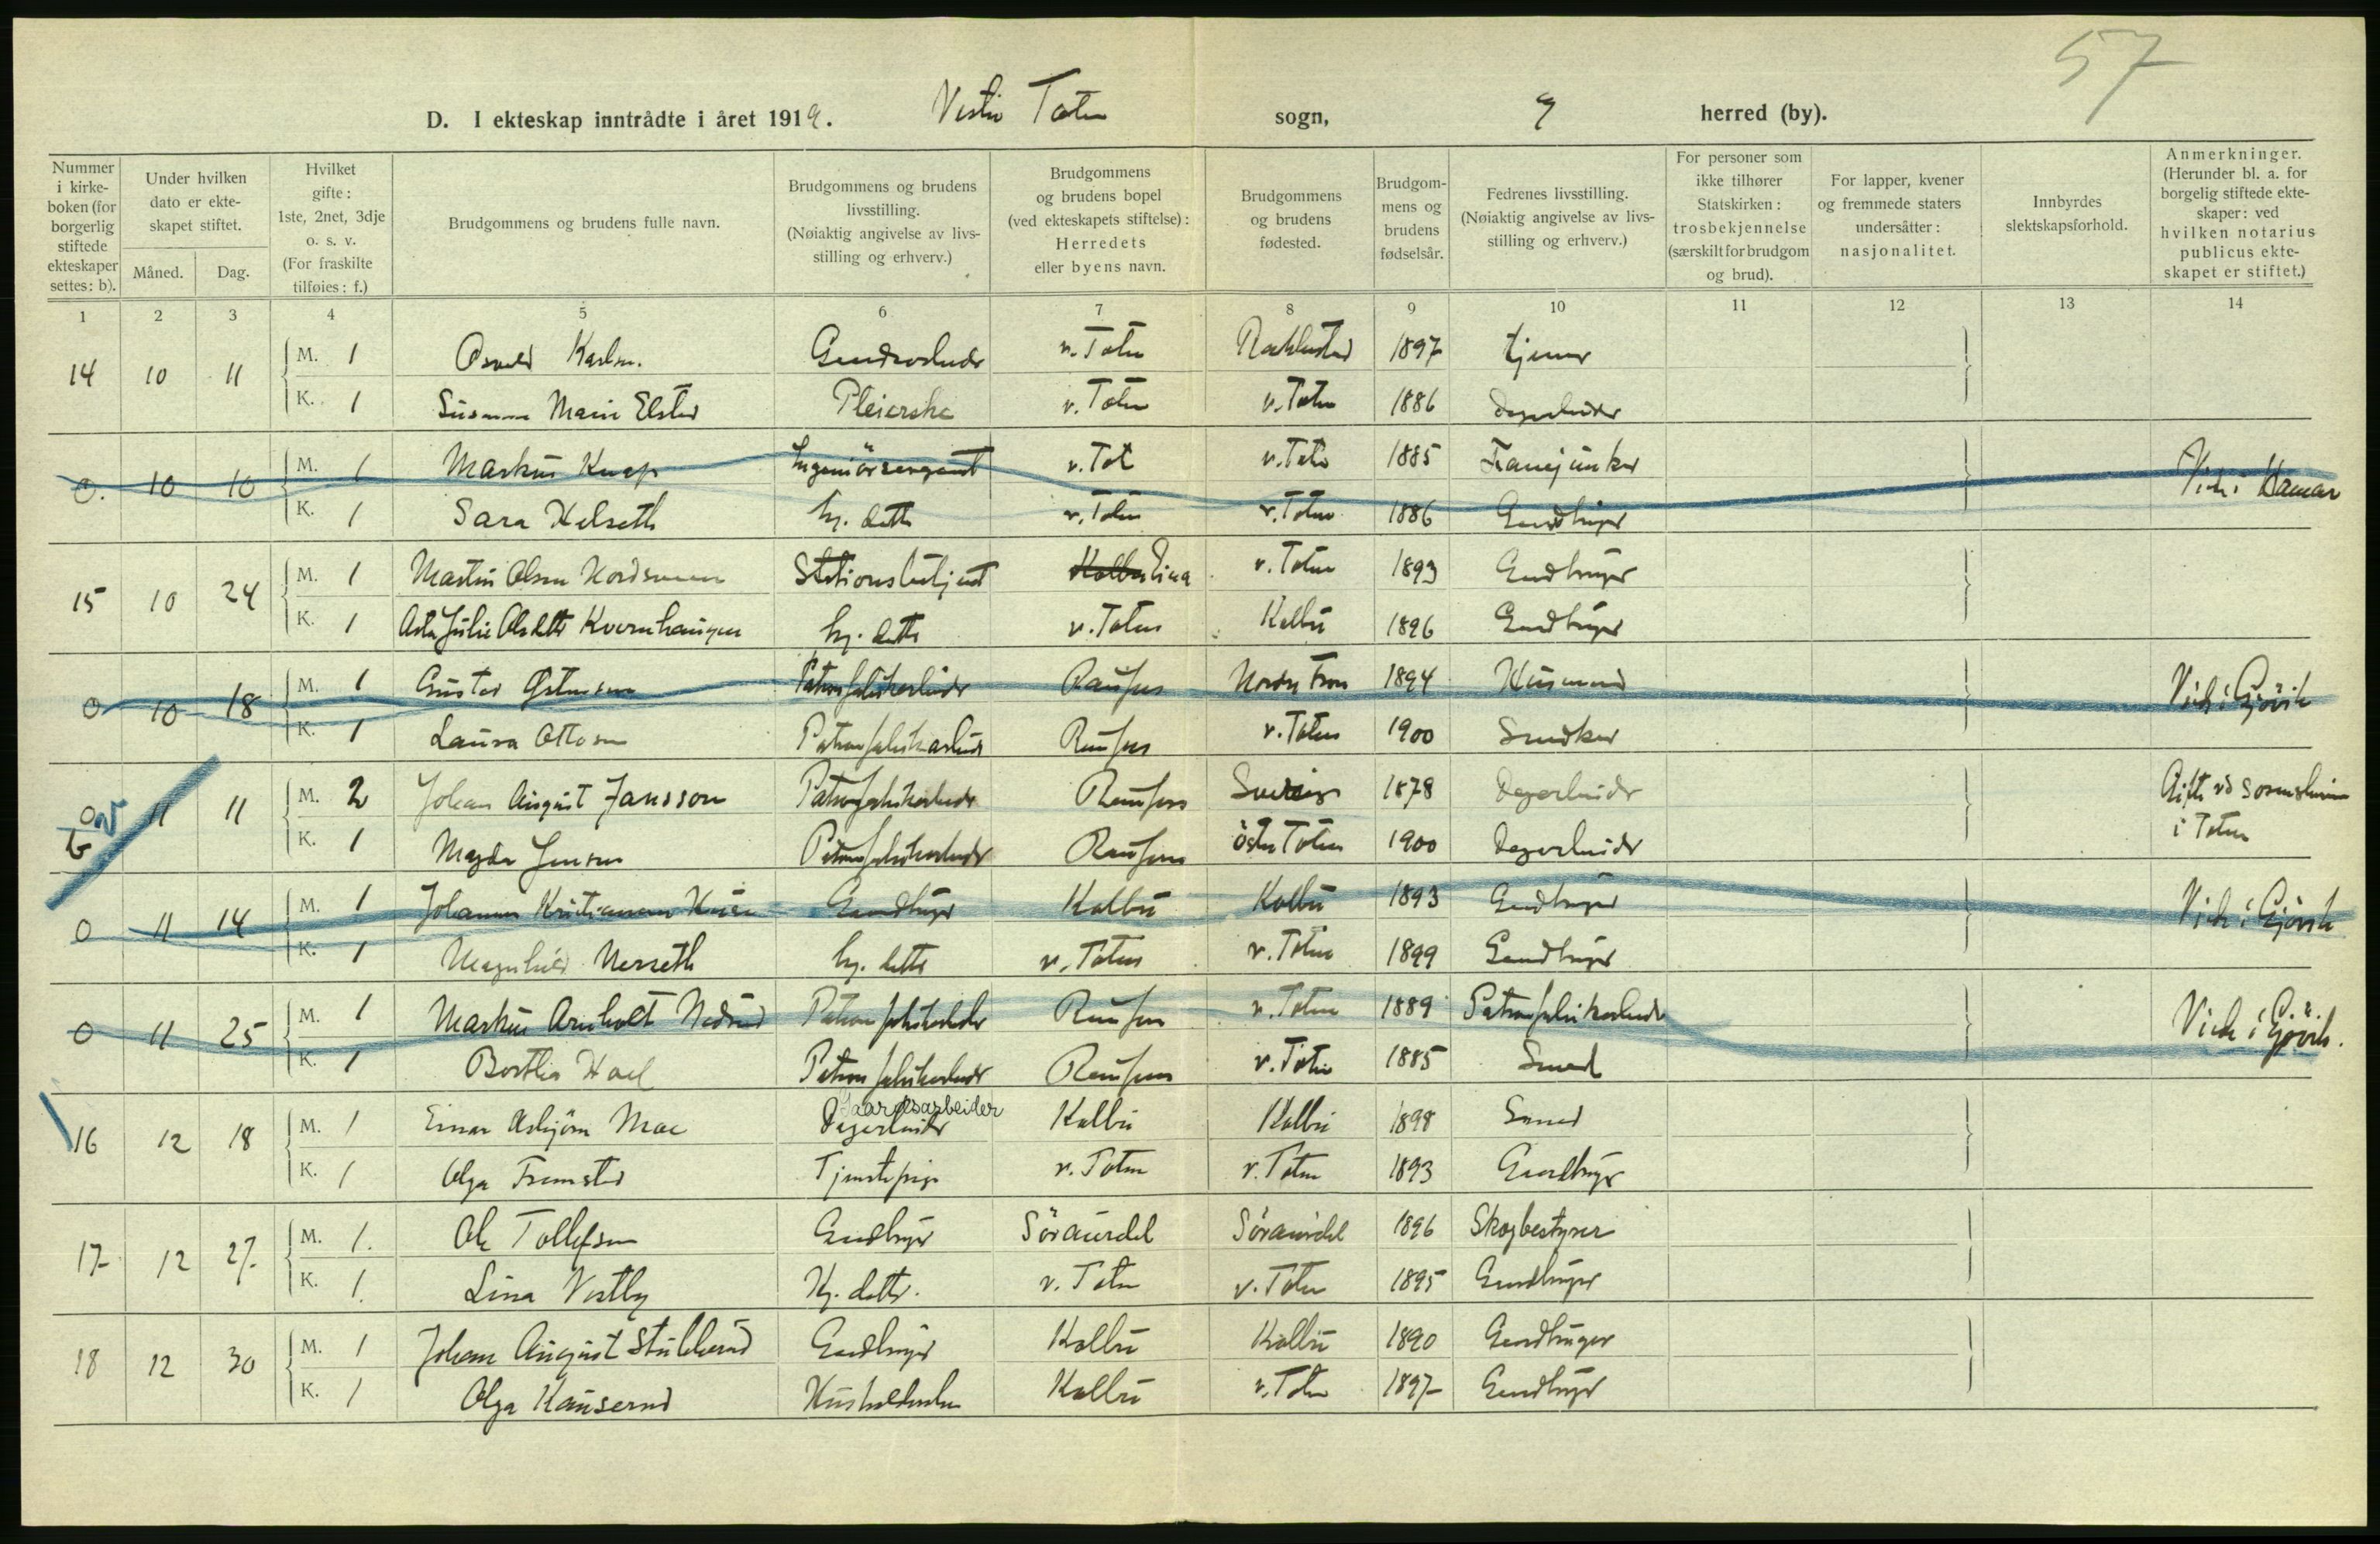 57
D. I ekteskap inntrådte i året 1919. Vestre Toten sogn, herred (by).
Nummer i kirkeboken (for borgerlig stiftede ekteskaper settes: b).
Under hvilken dato er ekteskapet stiftet.
Måned. Dag.
Hvilket gifte: 1ste, 2net, 3dje o. s. v. (For fraskilte tilføies: f.)
Brudgommens og brudens fulle navn.
Brudgommens og brudens livsstilling. (Nøiaktig angivelse av livsstilling og erhverv.)
Brudgommens og brudens bopel (ved ekteskapets stiftelse): Herredets eller byens navn.
Brudgommens og brudens fødested.
Brudgommens og brudens fødselsår.
Fedrenes livsstilling. (Nøiaktig angivelse av livsstilling og erhverv.)
For personer som ikke tilhører Statskirken: trosbekjennelse (særskilt for brudgom og brud).
For lapper, kvener og fremmede staters undersåtter: nasjonalitet.
Innbyrdes slektskapsforhold.
Anmerkninger. (Herunder bl. a. for borgelig stiftede ekteskaper: ved hvilken notarius publicus ekteskapet er stiftet.)
1 2 3 4 5 6 7 8 9 10 11 12 13 14
14 10 11 M. 1 Karlsen v. Toten 1897 tjener
K. 1 Marie Elstad Pleierske v. Toten v. Toten 1886
0. 10 10 M. 1 Markus Knap Ingeniörsergeant v. Tot v. Toten 1885 Fanejunker Viet i Hamar
K. 1 Sara Helseth hj. datter v. Toten v. Toten 1886 Gaardbruger
15 10 24 M. 1 Martin Olsen Stationsbetjent Kolbu Eina v. Toten 1893 Gaardbruger
K. 1 Asta Julie Olsdatter Kvernhaugen hj. datter v. Toten Kolbu 1896 Gaardbruger
0 10 18 M. 1 Gustav Østensen Patronfabrikarbeider Raufos Nordre Fron 1894 Husmand Viet i Gjövik
K. 1 Laura Ottosen Patronfabrikarbeider Raufos v. Toten 1900 Snedker
0 b v 11 11 M. 2 Johan August Jansson Patronfabrikarbeider Raufoss Sverige 1878 Dagarbeider Gift ved Sorenskriveren
K. 1 Magda Jensen Patronfabrikarbeider Raufoss östre Toten 1900 Dagarbeider i Toten
0 11 14 M. 1 Johannes Kristiansen Gaardbruger Kolbu Kolbu 1893 Gaardbruger Viet i Gjövik
K. 1 Magnhild Nerseth hj. datter v. Toten v. Toten 1899 Gaardbruger
0 11 25 M. 1 Markus Arnholt Patronfabrikarbeider Raufoss v. Toten 1889 Patronfabrikarbeider Viet i Gjövik.
K. 1 Berthe Patronfabrikarbeider Raufoss v. Toten 1885 Smed
16 12 18 M. 1 Einar Asbjörn Moe Gaardsarbeider Dagarbeider Kolbu Kolbu 1898 Smed
K. 1 Olga Fremstad Tjenstepige v. Toten v. Toten 1893 Gaardbruger
17 12 27 M. 1. Ole Tollefsen Gaardbruger Söraurdal Söraurdal 1896 Skogbestyrer
K. 1. Lina Vestby Hj. datter. v. Toten v. Toten 1895 Gaardbruger
18 12 30 M. 1 Johan August Gaardbruger Kolbu Kolbu 1890 Gaardbruger
K. 1 Olga Kauserud Kolbu v. Toten 1897 Gaardbruger